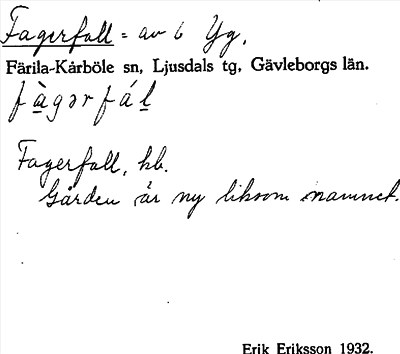 Fagerfall = av 6 Yg.
Färila-Kårböle sn, Ljusdals tg, Gävleborgs län.
fàgərfál
Fagerfall, hb.
Gården är ny liksom namnet.
Erik Eriksson 1932.